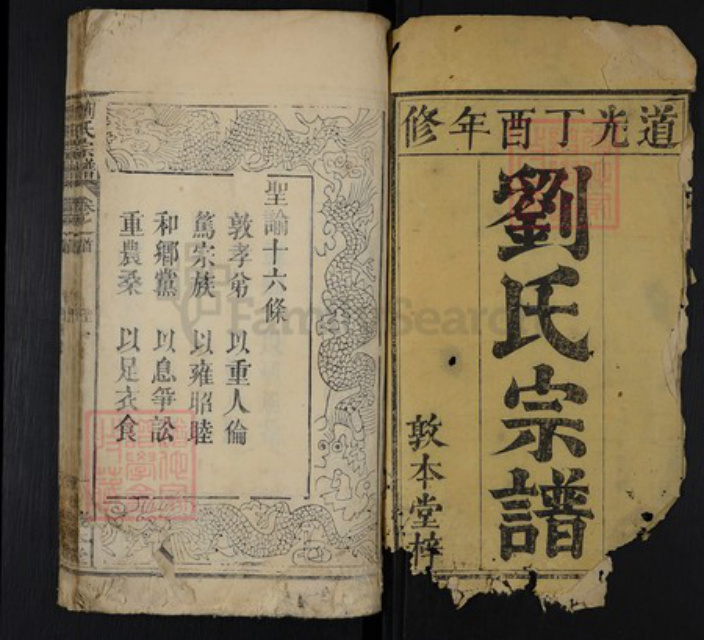 道光丁酉年修
劉氏宗譜
敦本堂梓
聖諭十六條
敦孝弟 以重人倫
篤宗族 以雍昭睦
和鄉黨 以息爭訟
重農桑 以足衣食
劉氏宗譜
FamilySearch